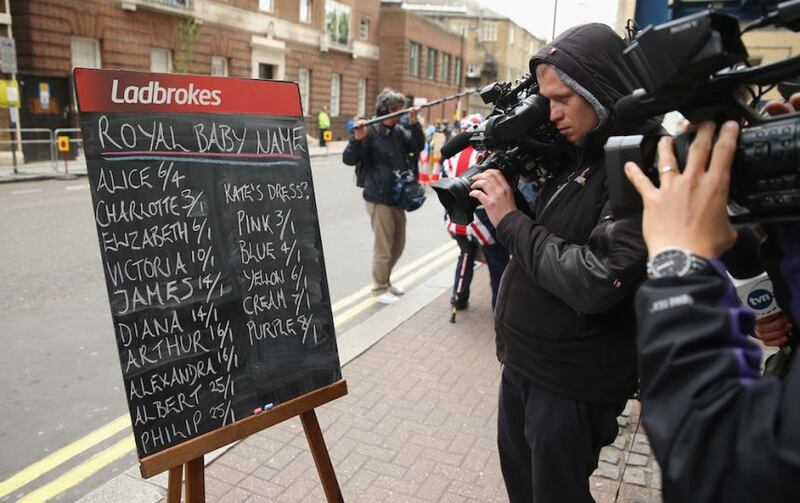 Ladbrokes
ROYAL BABY NAME
ALICE 6/4
CHARLOTTE 3/1
ELIZABETH 6/1
VICTORIA 10/1
JAMES 14/1
DIANA 14/1
ARTHUR 16/1
ALEXANDRA 16/1
ALBERT 25/1
PHILIP 25/1
KATE'S DRESS?
PINK 3/1
BLUE 4/1
YELLOW 6/1
CREAM 7/1
PURPLE 8/1
tvn